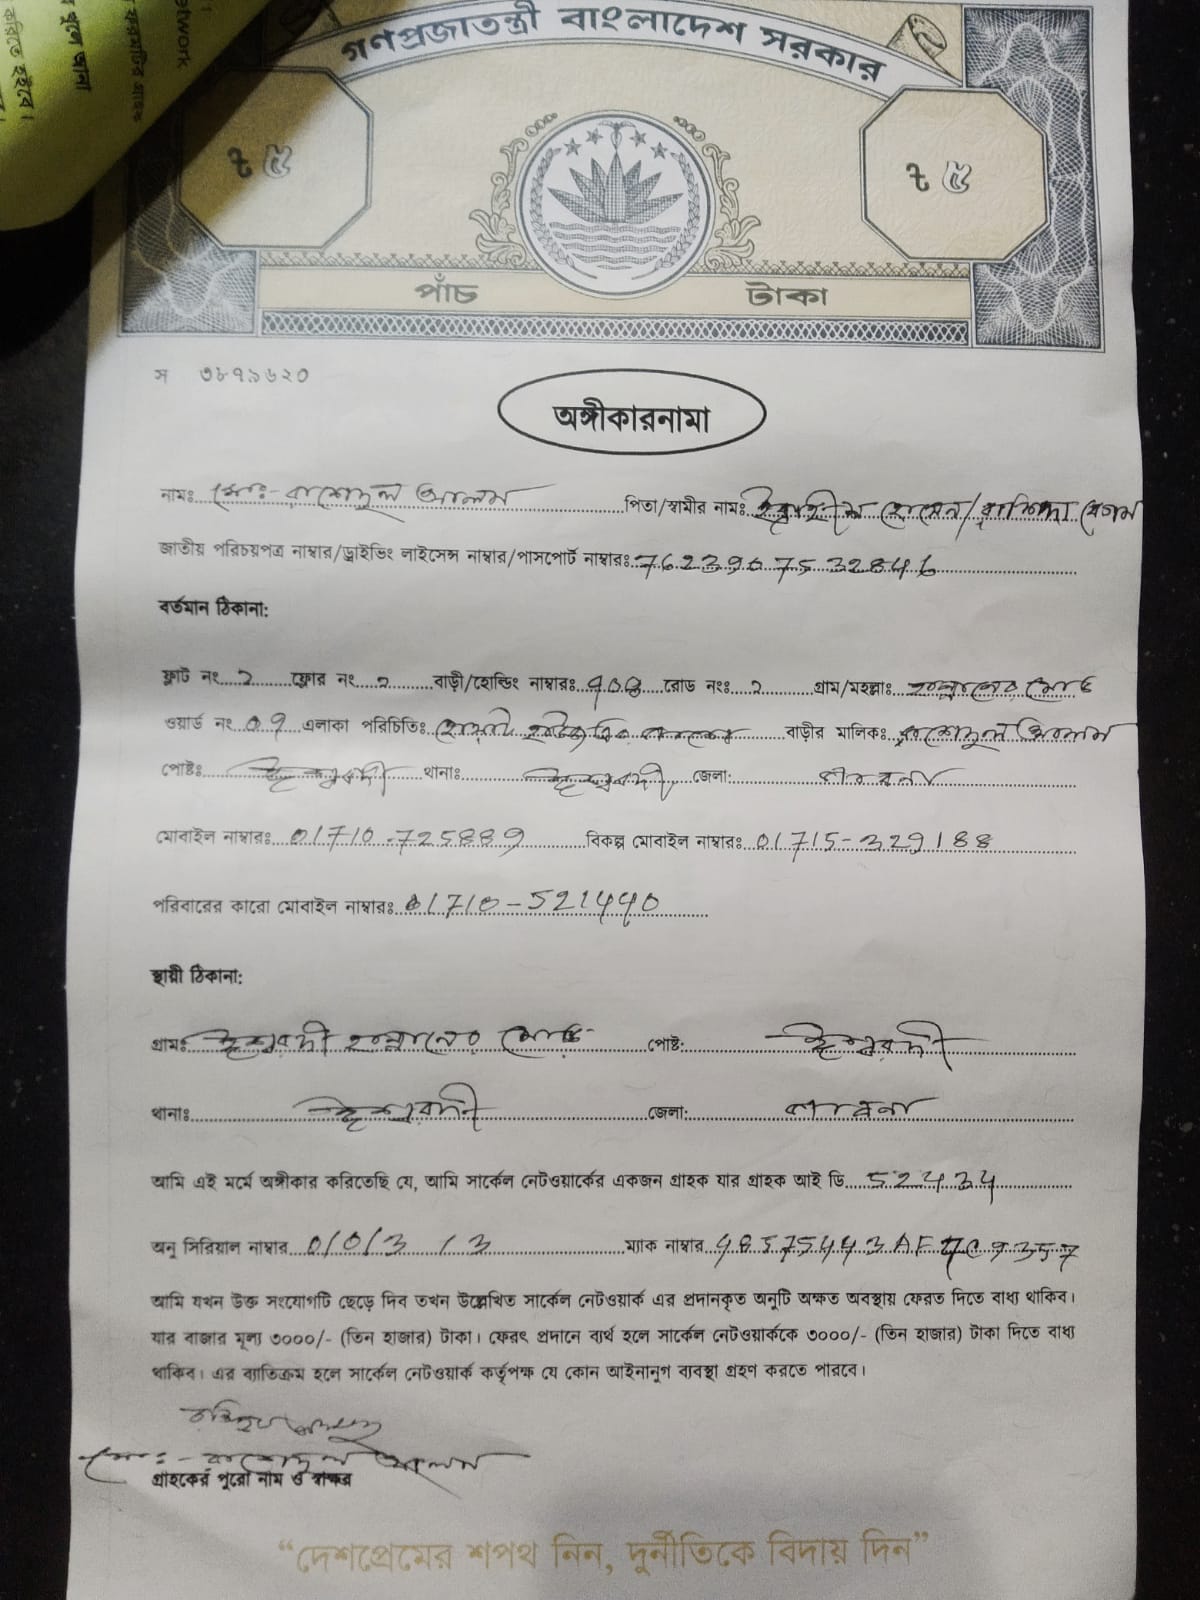 গণপ্রজাতন্ত্রী বাংলাদেশ সরকার
৳ ৫ ৳ ৫
পাঁচ টাকা
স ৩৮৭৯৬২০
অঙ্গীকারনামা
নামঃ মোঃ- রাশেদুল আলম পিতা/স্বামীর নামঃ ইব্রাহীম হোসেন/রাশিদা বেগম
জাতীয় পরিচয়পত্র নাম্বার/ড্রাইভিং লাইসেন্স নাম্বার/পাসপোর্ট নাম্বারঃ 7623907532846
বর্তমান ঠিকানা:
ফ্লাট নং ২ ফ্লোর নং ২ বাড়ী/হোল্ডিং নাম্বারঃ রোড নংঃ ২ গ্রাম/মহল্লাঃ মোড়
ওয়ার্ড নং 0৭ এলাকা পরিচিতিঃ বাড়ীর মালিকঃ রাশেদুল আলম
পোষ্টঃ ঈশ্বরদী থানাঃ ঈশ্বরদী জেলা: পাবনা
মোবাইল নাম্বারঃ 01710-725889 বিকল্প মোবাইল নাম্বারঃ 01715-329188
পরিবারের কারো মোবাইল নাম্বারঃ 01710-521440
স্থায়ী ঠিকানা:
গ্রামঃ ঈশ্বরদী মোড় পোষ্ট: ঈশ্বরদী
থানাঃ ঈশ্বরদী জেলা: পাবনা
আমি এই মর্মে অঙ্গীকার করিতেছি যে, আমি সার্কেল নেটওয়ার্কের একজন গ্রাহক যার গ্রাহক আই ডি 52434
অনু সিরিয়াল নাম্বার 0/0/3 /3 ম্যাক নাম্বার
আমি যখন উক্ত সংযোগটি ছেড়ে দিব তখন উল্লেখিত সার্কেল নেটওয়ার্ক এর প্রদানকৃত অনুটি অক্ষত অবস্থায় ফেরত দিতে বাধ্য থাকিব।
যার বাজার মূল্য ৩০০০/- (তিন হাজার) টাকা। ফেরৎ প্রদানে ব্যর্থ হলে সার্কেল নেটওয়ার্ককে ৩০০০/- (তিন হাজার) টাকা দিতে বাধ্য
থাকিব। এর ব্যাতিক্রম হলে সার্কেল নেটওয়ার্ক কর্তৃপক্ষ যে কোন আইনানুগ ব্যবস্থা গ্রহণ করতে পারবে।
মোঃ- রাশেদুল আলম
গ্রাহকের পুরো নাম ও স্বাক্ষর
“দেশপ্রেমের শপথ নিন, দুর্নীতিকে বিদায় দিন”